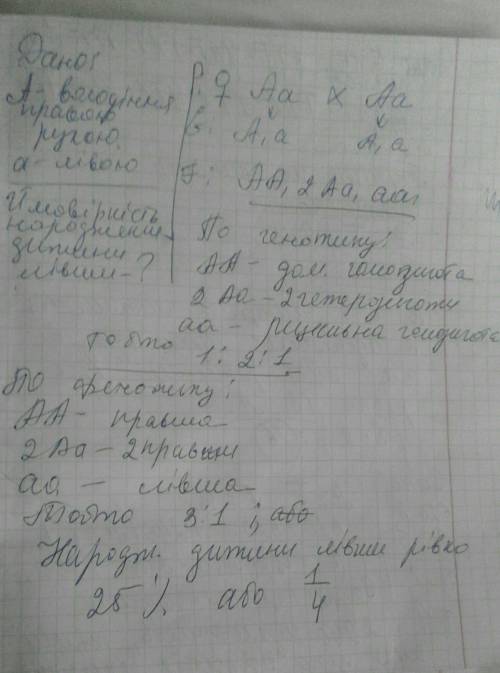 Дано:
А - володіння
правою
рукою
а - лівою
Ймовірність
народження
дитини
лівши - ?
P: ♀ Аа x Аа
G: А, а А, а
F: АА, 2 Аа, аа
По генотипу:
АА - дом. гомозигота
2 Аа - 2 гетерозиготи
аа - рецесивна гомозигота
тобто 1 : 2 : 1
По фенотипу:
АА - правша
2 Аа - 2 правши
аа - лівша
Тобто 3 : 1 ; або
Народж. дитини лівши рівно
25 % або 1/4